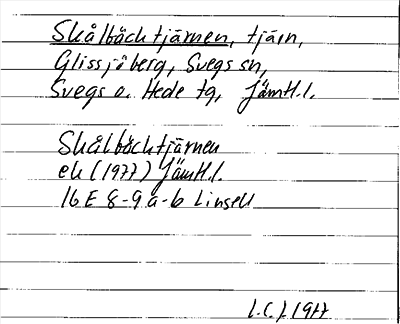 Skålbäcktjärnen, tjärn,
Glissjöberg, Svegs sn,
Svegs o. Hede tg, Jämtl.l.
Skålbäcktjärnen
ek (1977) Jämtl.l.
16 E 8-9 a-b Linsell
L.C.J. 1977